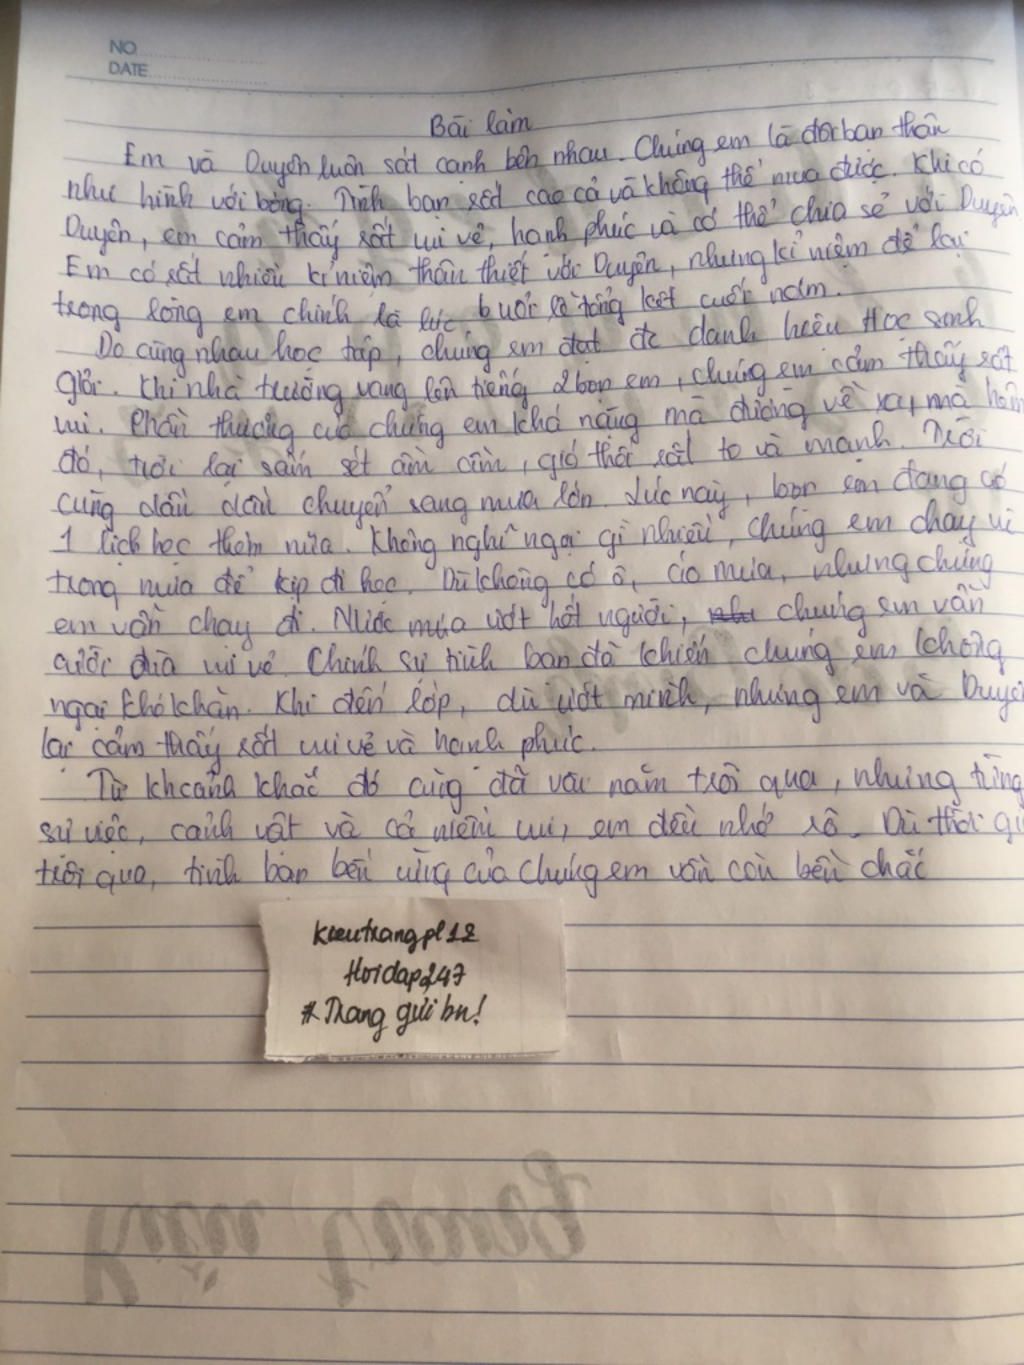 NO
DATE
Bài làm
Em và Duyên luôn sát cánh bên nhau. Chúng em là đôi bạn thân
như hình với bóng. Tình bạn rất cao cả và không thể mua được. Khi có
Duyên, em cảm thấy rất vui vẻ, hạnh phúc và có thể chia sẻ với Duyên
Em có rất nhiều kỉ niệm thân thiết với Duyên, nhưng kỉ niệm để lại
trong lòng em chính là lúc buổi lễ tổng kết cuối năm.
Do cùng nhau học tập, chúng em đạt đc danh hiệu Học sinh
Giỏi. Khi nhà trường vang lên tiếng 2 bọn em, chúng em cảm thấy rất
vui. Phần thưởng của chúng em khá nặng mà đường về xa, mà hôm
đó, trời lại sấm sét ầm ầm, gió thổi rất to và mạnh. Trời
cũng dần dần chuyển sang mưa lớn. Lúc này, bọn em đang có
1 lịch học thêm nữa. Không nghĩ ngại gì nhiều, chúng em chạy vì
trong mưa để kịp đi học. Dù không có ô, áo mưa, nhưng chúng
em vẫn chạy đi. Nước mưa ướt hết người, chúng em vẫn
cười đùa vui vẻ. Chính sự tình bạn đã khiến chúng em không
ngại khó khăn. Khi đến lớp, dù ướt mình, nhưng em và Duyê
lại cảm thấy rất vui vẻ và hạnh phúc.
Từ khoảnh khắc đó cũng đã vài năm trôi qua, nhưng từng
sự việc, cảnh vật và cả niềm vui, em đều nhớ rõ. Dù thời gi
trôi qua, tình bạn bền vững của chúng em vẫn còn bền chắc
kieutrangpl12
Hoidap247
#Trang gửi bn!